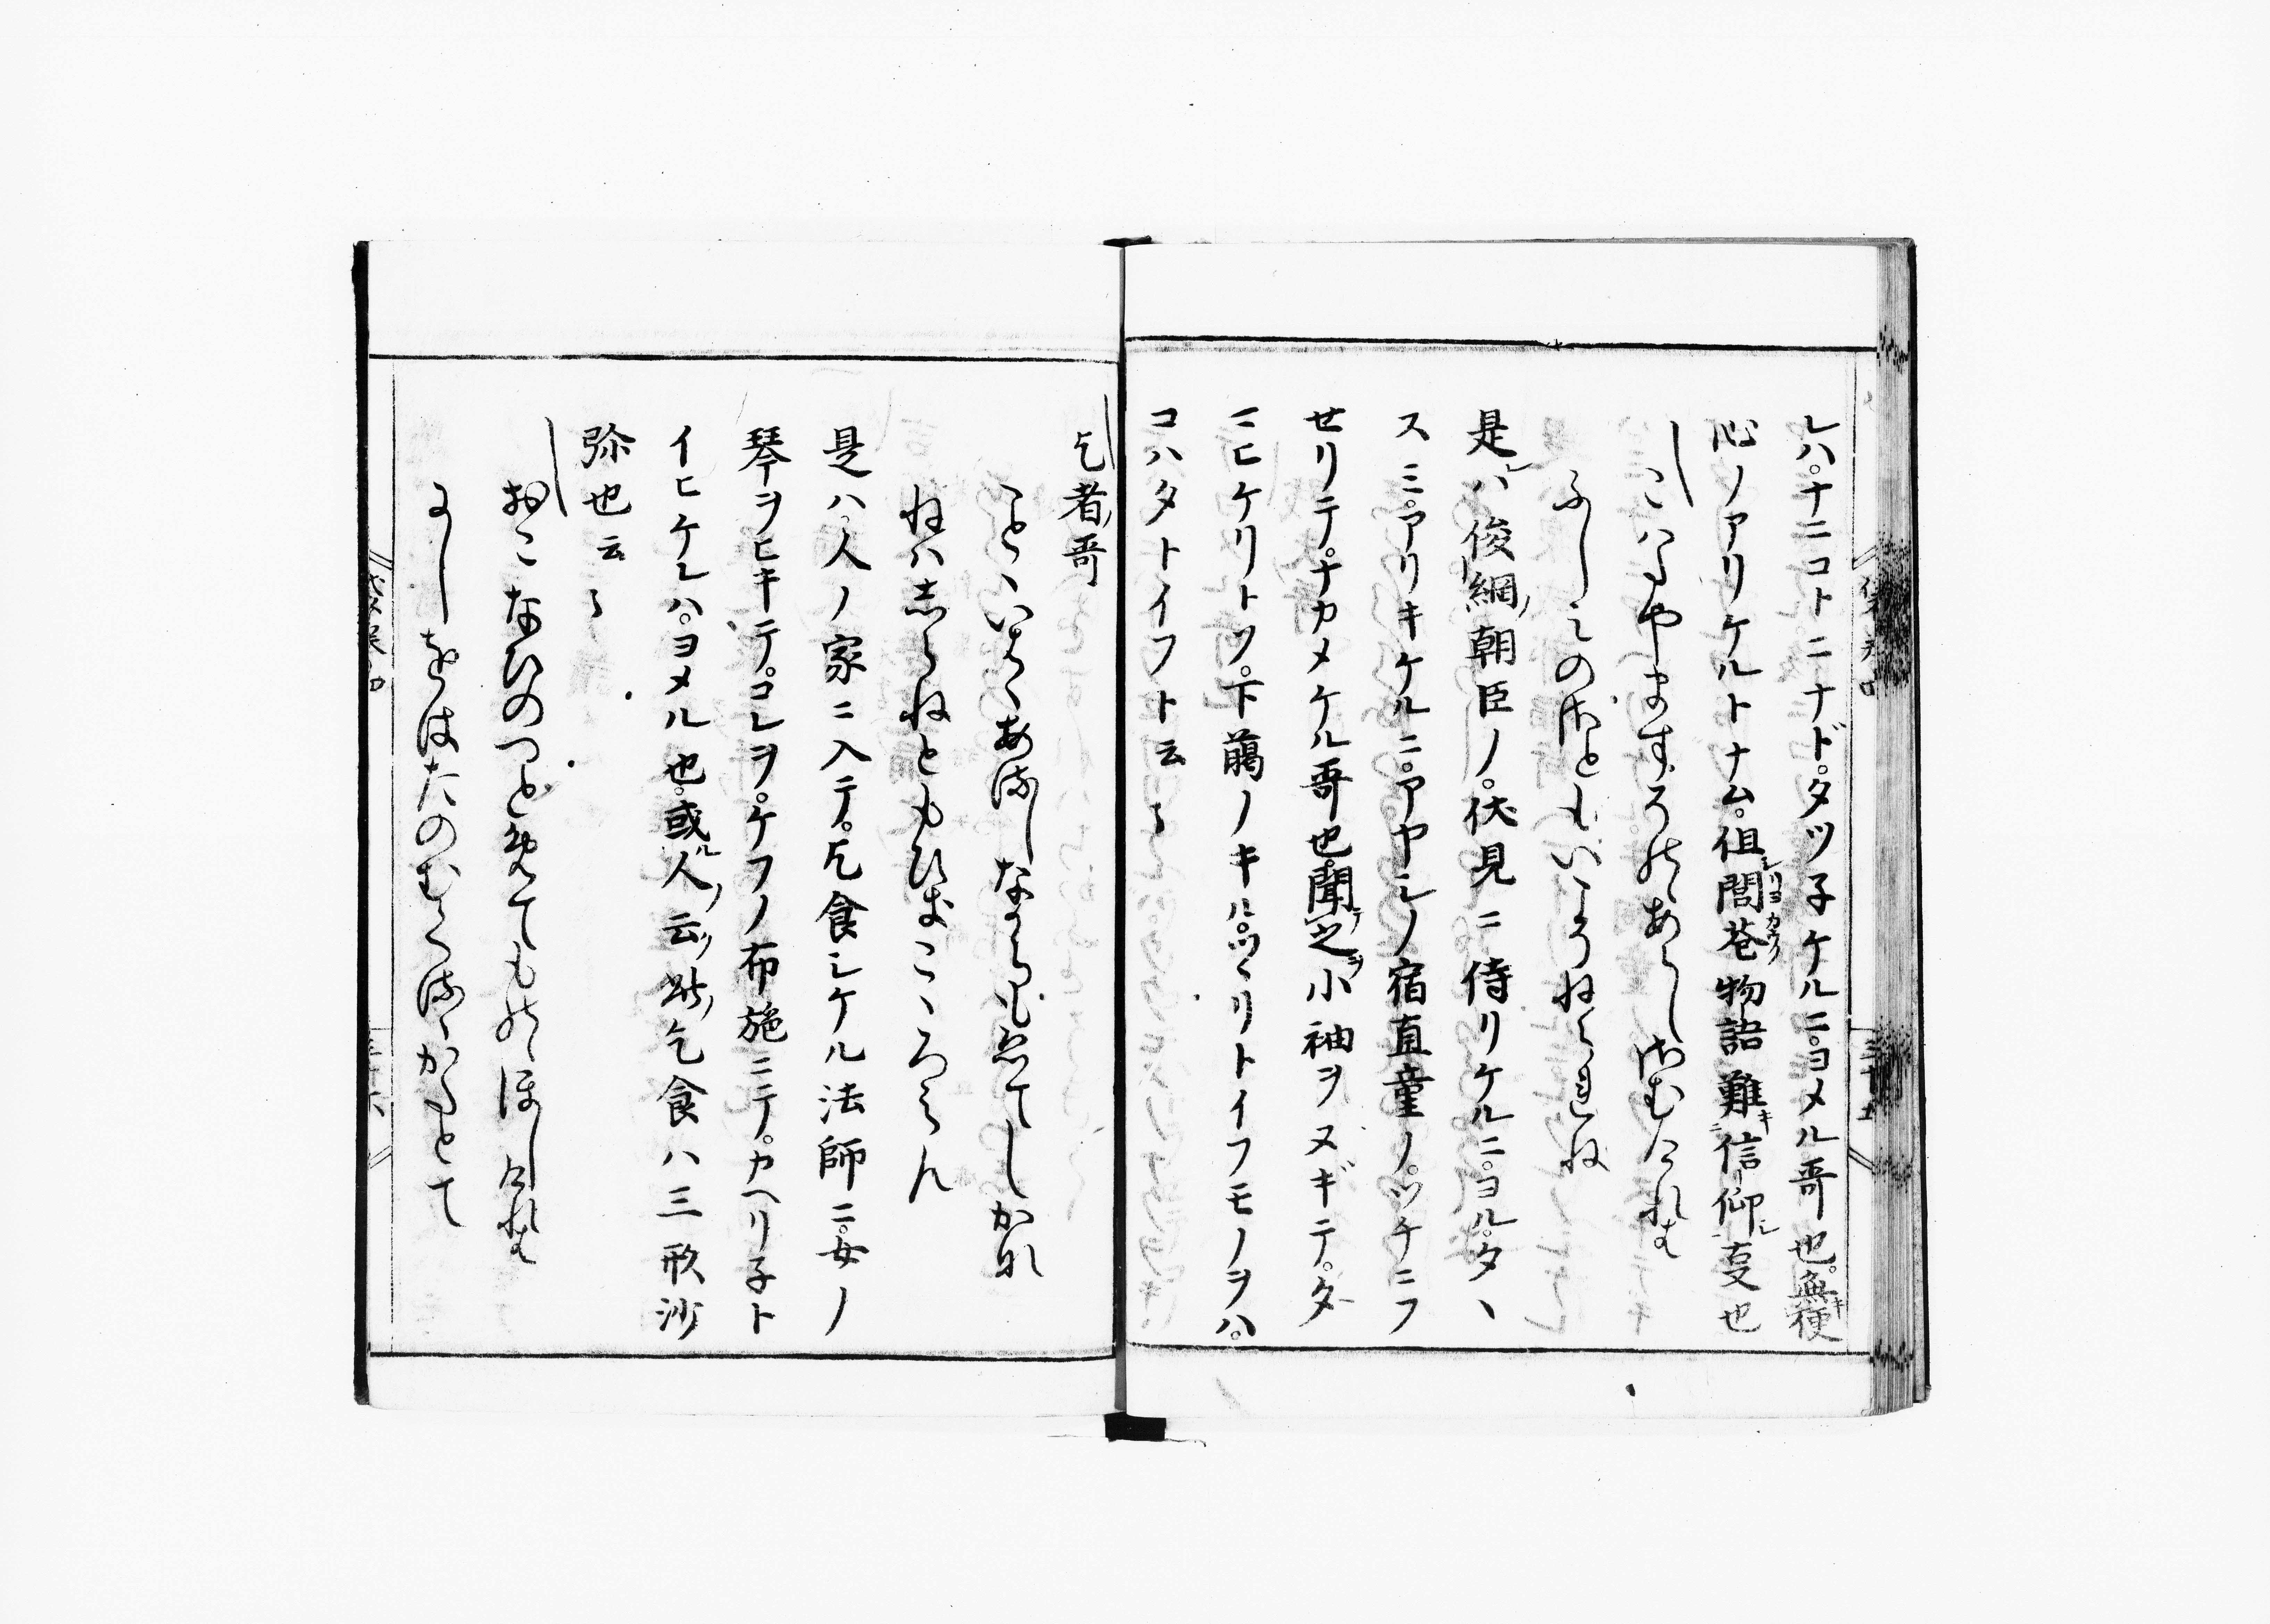 レハ。ナニコトニナド。タツ子ケルニ。ヨメル哥也。無梗
心ノアリケルトナム。但閭巷物語難信仰叓也
こはたやますそのあらしのさむけれは
ふしみのさともいこそねられね
是ハ俊綱朝臣ノ。伏見ニ侍リケルニ。ヨル。タヽ
スミ。アリキケルニ。アヤシノ宿直童ノ。ツチニフ
セリテ。ナカメケル哥也聞之小袖ヲヌギテ。タ
ニヒケリトソ。下﨟ノキル。ツヽリトイフモノヲハ。
コハタトイフト云〻
乞者哥
ことゝいはゝあるしなからもえてしかれ
ねはしらねともひきこゝろみん
是ハ。人ノ家ニ入テ。乞食シケル法師ニ。女ノ
琴ヲヒキテ。コレヲ。ケフノ布施ニテ。カヘリ子ト
イヒケレハ。ヨメル也。或人云此乞食ハ三形沙
弥也云〻
おこなひのつとめてものゝほしけれは
よしをはたのむくるゝかたとて